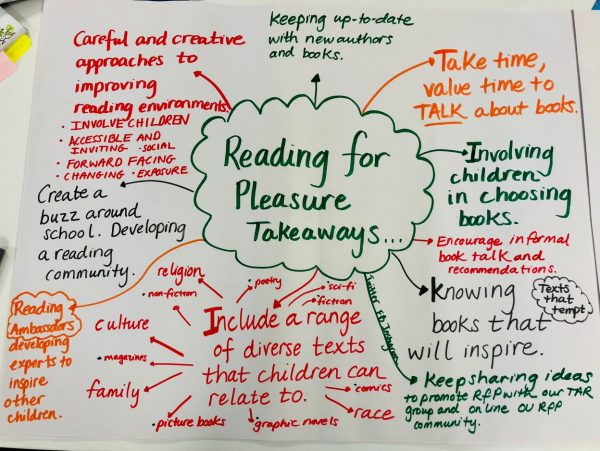 Reading for
Pleasure
Takeaways...
Keeping up-to-date
with new authors
and books.
Take time,
value time to
TALK about books.
Involving
children
in choosing
books.
Encourage informal
book talk and
recommendations.
Knowing
books that
will inspire.
Texts
that
tempt
Keep sharing ideas
to promote RfP with our TAR
group and online OU RfP
community.
Twitter
Instagram
Include a range
of diverse texts
that children can
relate to.
poetry
sci-fi
fiction
comics
race
graphic novels
picture books
family
magazines
culture
non-fiction
religion
Reading
Ambassadors
developing
experts to
inspire
other
children.
Create a
buzz around
school. Developing
a reading
community.
Careful and creative
approaches to
improving
reading environments.
• INVOLVE CHILDREN
• ACCESSIBLE AND
INVITING • SOCIAL
• FORWARD FACING
• CHANGING • EXPOSURE